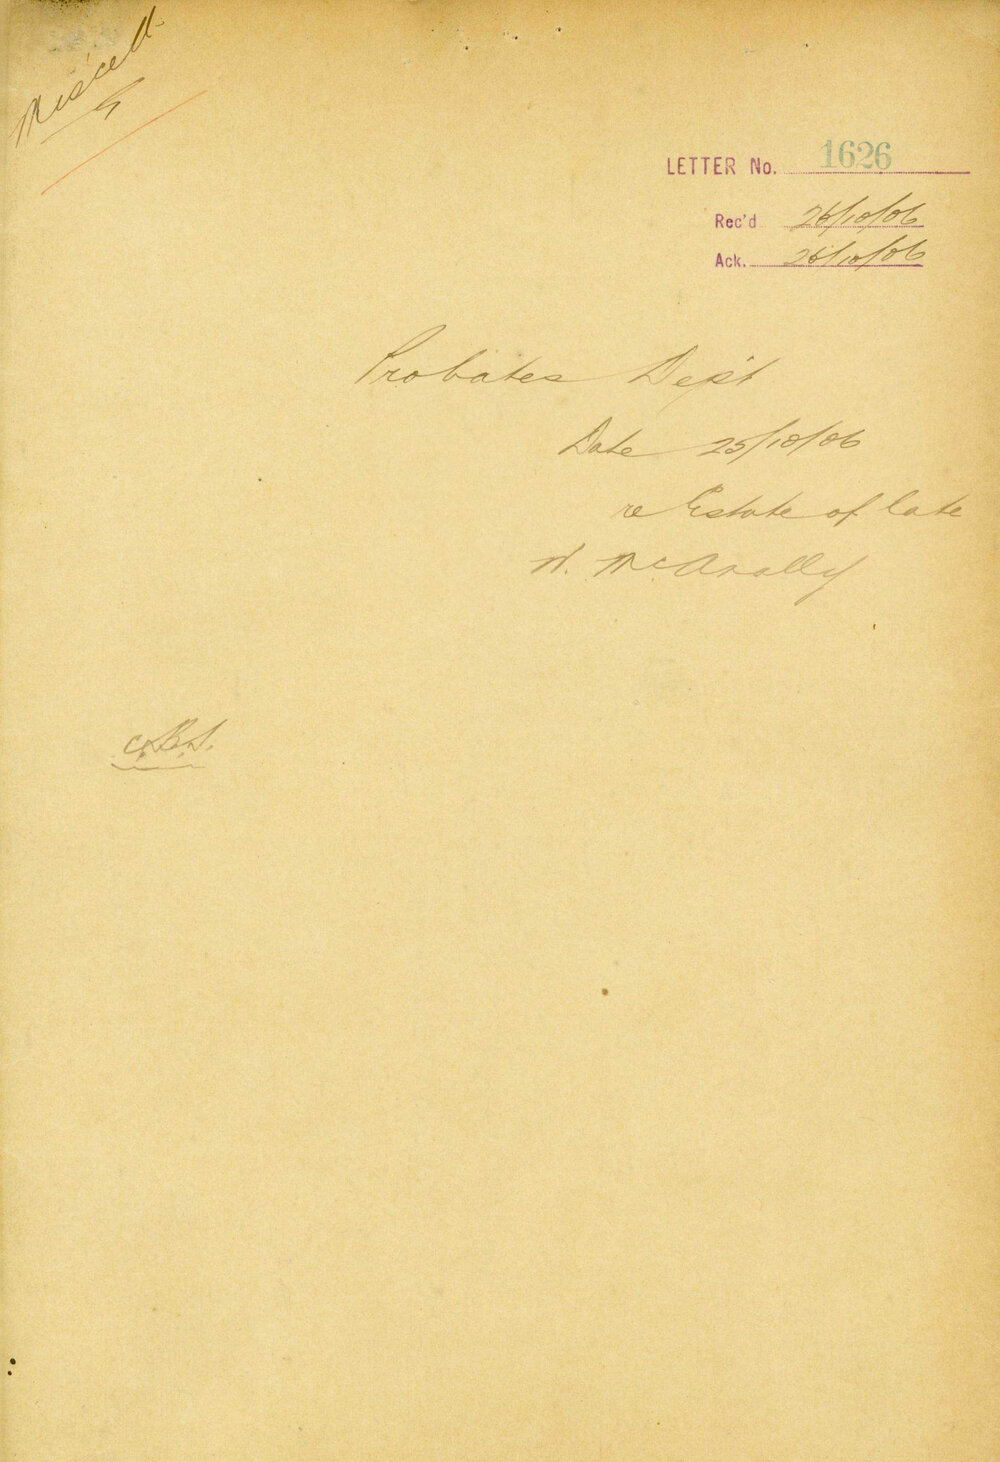 Miscell
LETTER No. 1626
Rec'd 26/10/06
Ack. 26/10/06
Probates Dept
Date 25/10/06
re Estate of late
McAnally